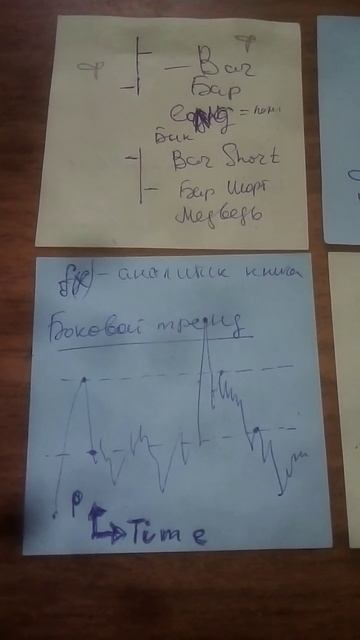 — Bar
Бар
Long =
Бык
Bar Short
Бар Шорт
Медведь
f(x) - аналитик книга
Боковой тренд
P
Time